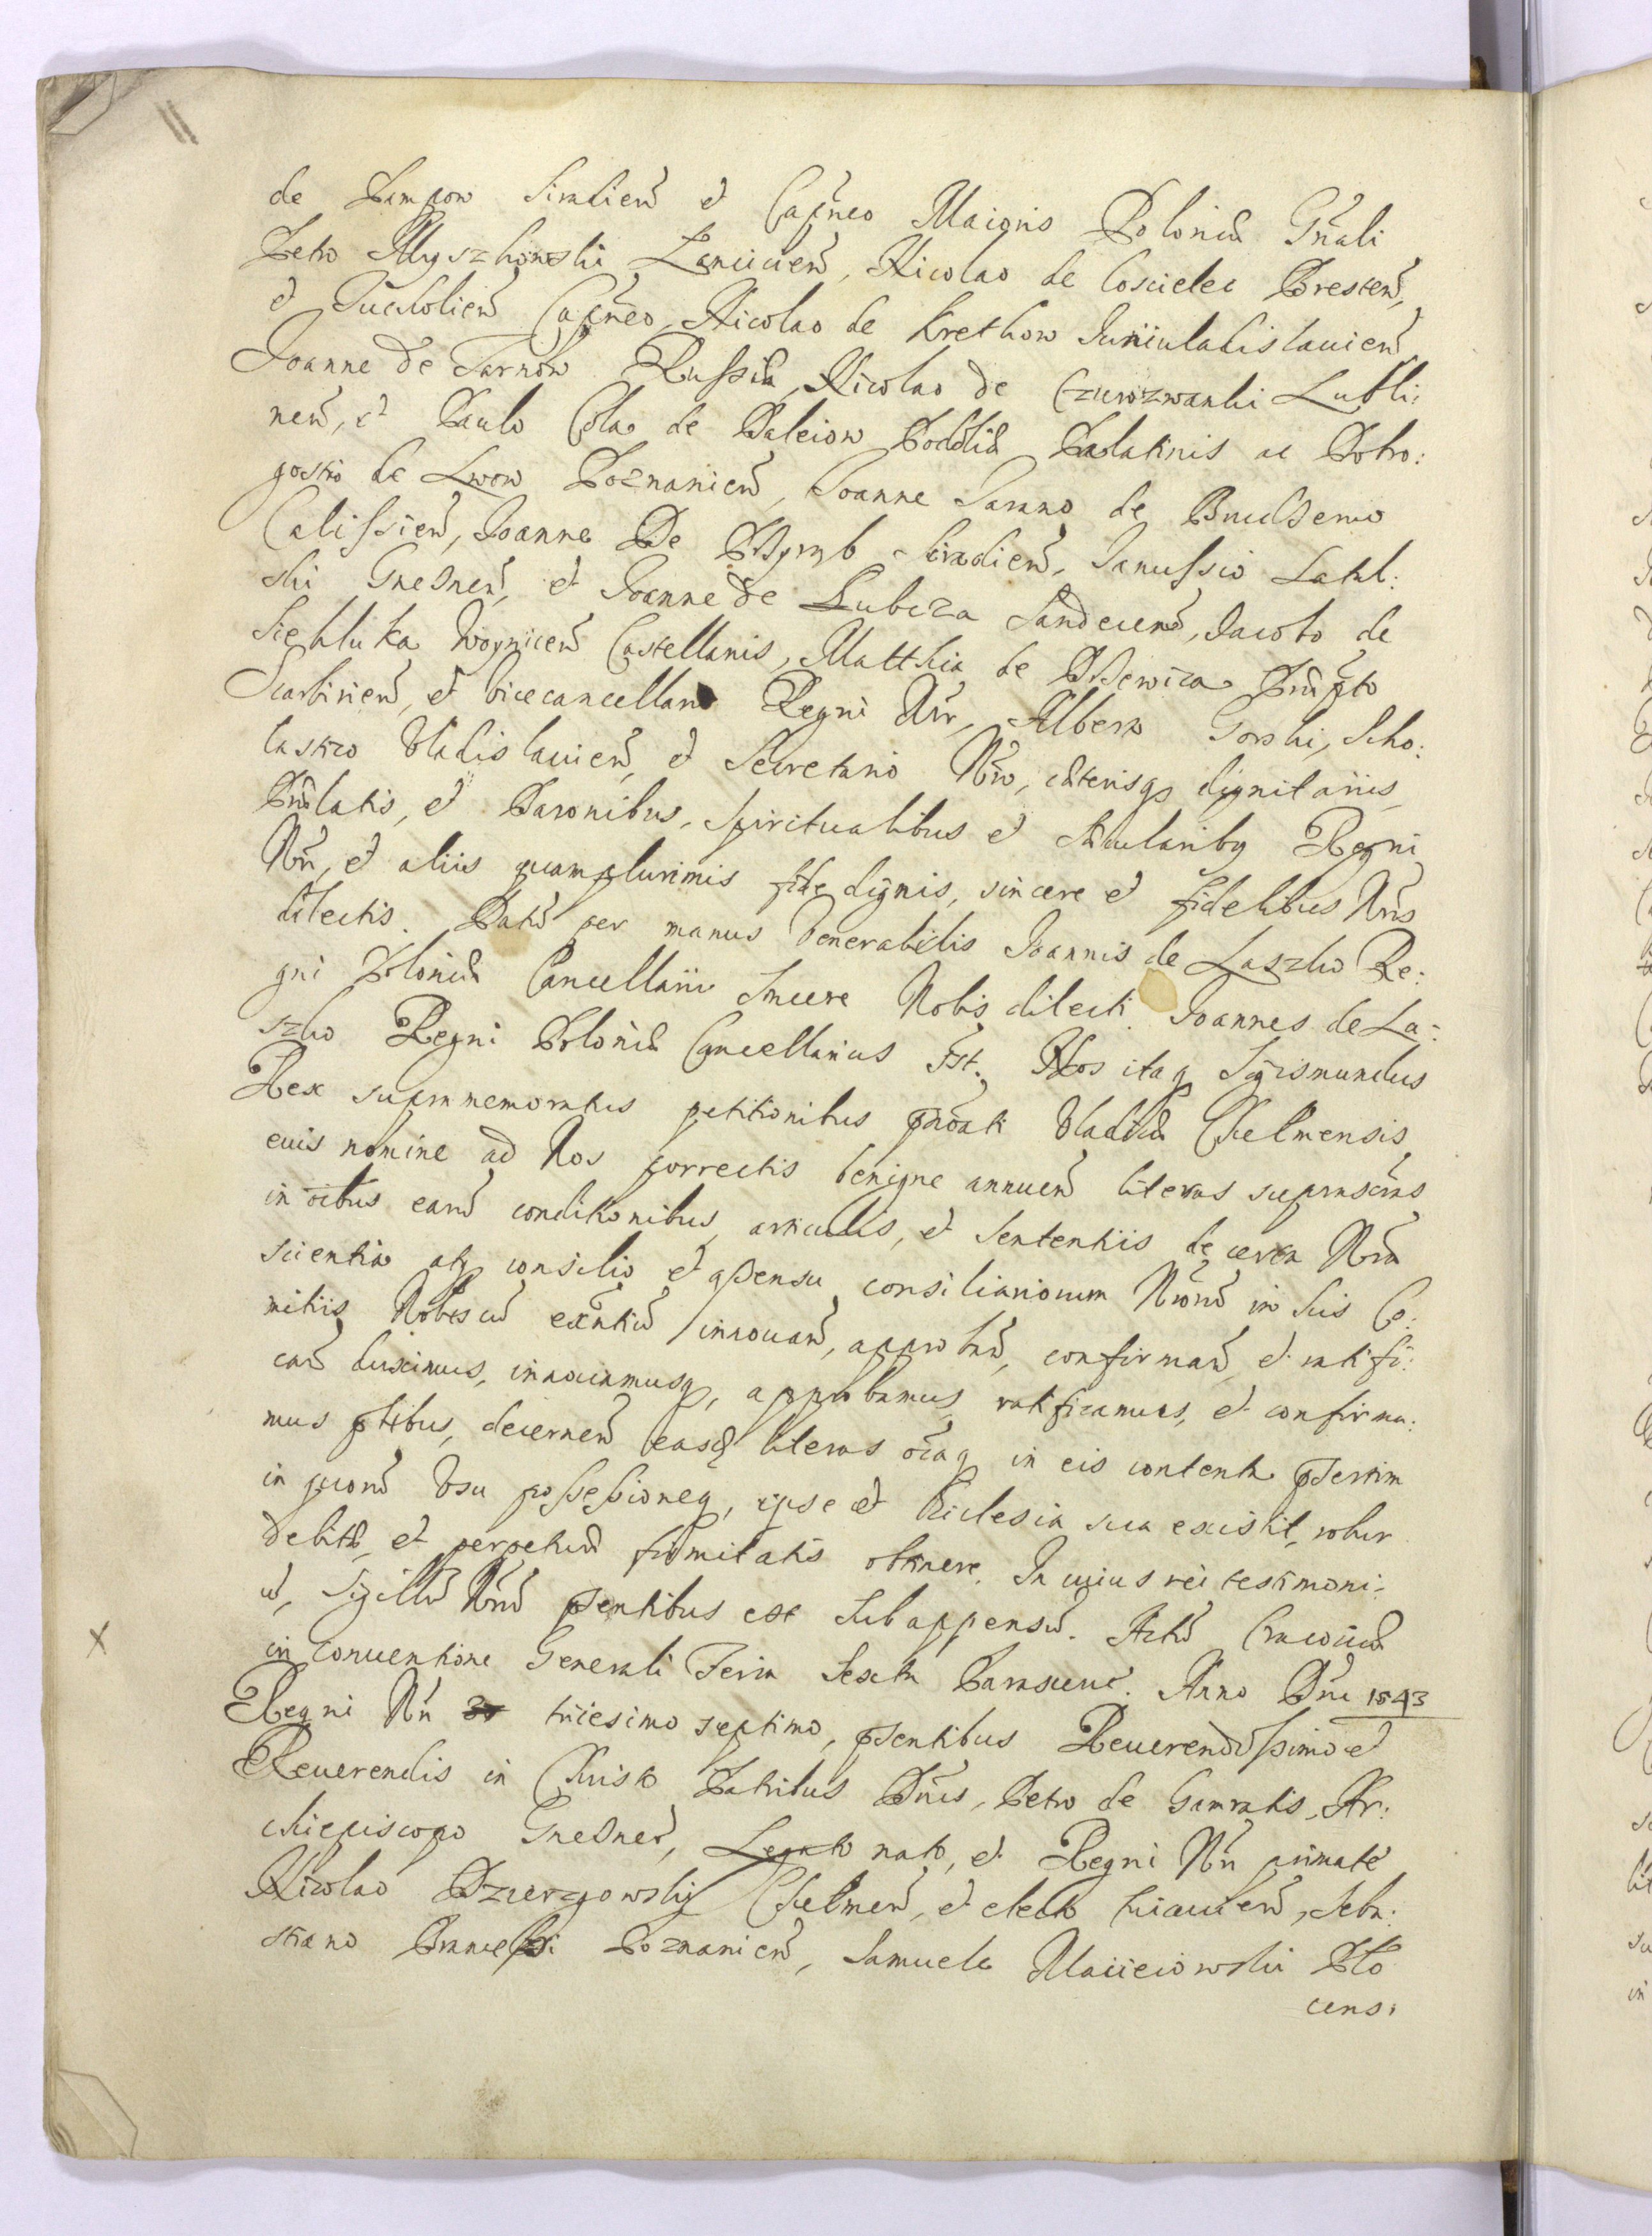 de Pampow Siradien̄ et Capn̄eo Maioris Poloniæ Gn̄ali
Petro Myszkowski Lancicien̄, Nicolao de Coscielec Bresten̄,
et Tucholien̄ Capn̄eo, Nicolao de Krethow Juniuladislauien̄
Joanne de Tarnow Russiæ, Nicolao de Lubli:
nen̄, et Paulo Cola de Daleiow Podoliæ Palatinis ac Dobro:
gostio de Lwow Poznanien̄, Joanne Jarand de Brudzewo
Calissien̄, Joanne De Siradien̄, Janussio Latal:
ski Gnesnen̄, et Joanne de Lubcza Sandecen̄, Jacobo de
Siekluka Woynicen̄ Castellanis, Matthia de Drzewica Præpto
Scarbirien̄, et Vicecancellario Regni Nr̄i, Alberto Gorski, Scho:
lastico Vladislauien̄, et Secretario Nr̄o, cæterisq dignitariis,
Prælatis, et Baronibus, Spiritualibus et Sæcularibq Regni
Nr̄i, et aliis quamplurimis fide dignis, sincere et fidelibus Nr̄is
dilectis. Datū per manus Venerabilis Joannis de Laszko Re:
gni Poloniæ Cancellarii Sincere Nobis dilecti. Joannes de La:
szko Regni Poloniæ Cancellarius sst. Nos itaq Sigismundus
Rex supramemoratis petitionibus Vladicæ Chelmensis,
euis nomine ad Nos porrectis benigne annuen̄ literas suprascr̄as
in oībus earū conditionibus, articulis, et Sententiis de certa Nr̄a
scientia atq consilio et assensu consiliariorum Nr̄orū in his Co:
mitiis Nobiscū exn̄tiū innouan̄, approban̄, confirman̄, et ratifi:
can̄ duximus, innouamusq, approbamus, ratificamus, et confirma:
mus p̄ntibus, decernen̄ easdē literas oīaq in eis contenta p̄sertim
in quorū Vsu possessioneq, ipse et Ecclesia sua existit, robur
debitæ, et perpetuæ firmitatis obtinere. In cuius rei testimoni:
ū, Sigillū Nr̄ū p̄sentibus est subappensū. Actū Cracouiæ
in Conuentione Generali Feria Sexta Parasceue. Anno Dn̄i 1543
Regni Nr̄i 3r triesimo septimo, p̄sentibus Reuerendissimo et
Reuerendis in Christo Patribus Dn̄is, Petro de Gamratis, Ar:
chiepiscopo Gnesnen̄, Legato nato, et Regni Nr̄i primate
Nicolao Dzierzgowskij Chelmen̄, et electo Cuiauien̄, Seba:
stiano Brancski Poznanien̄, Samuele Macieiowski Plo
cens: